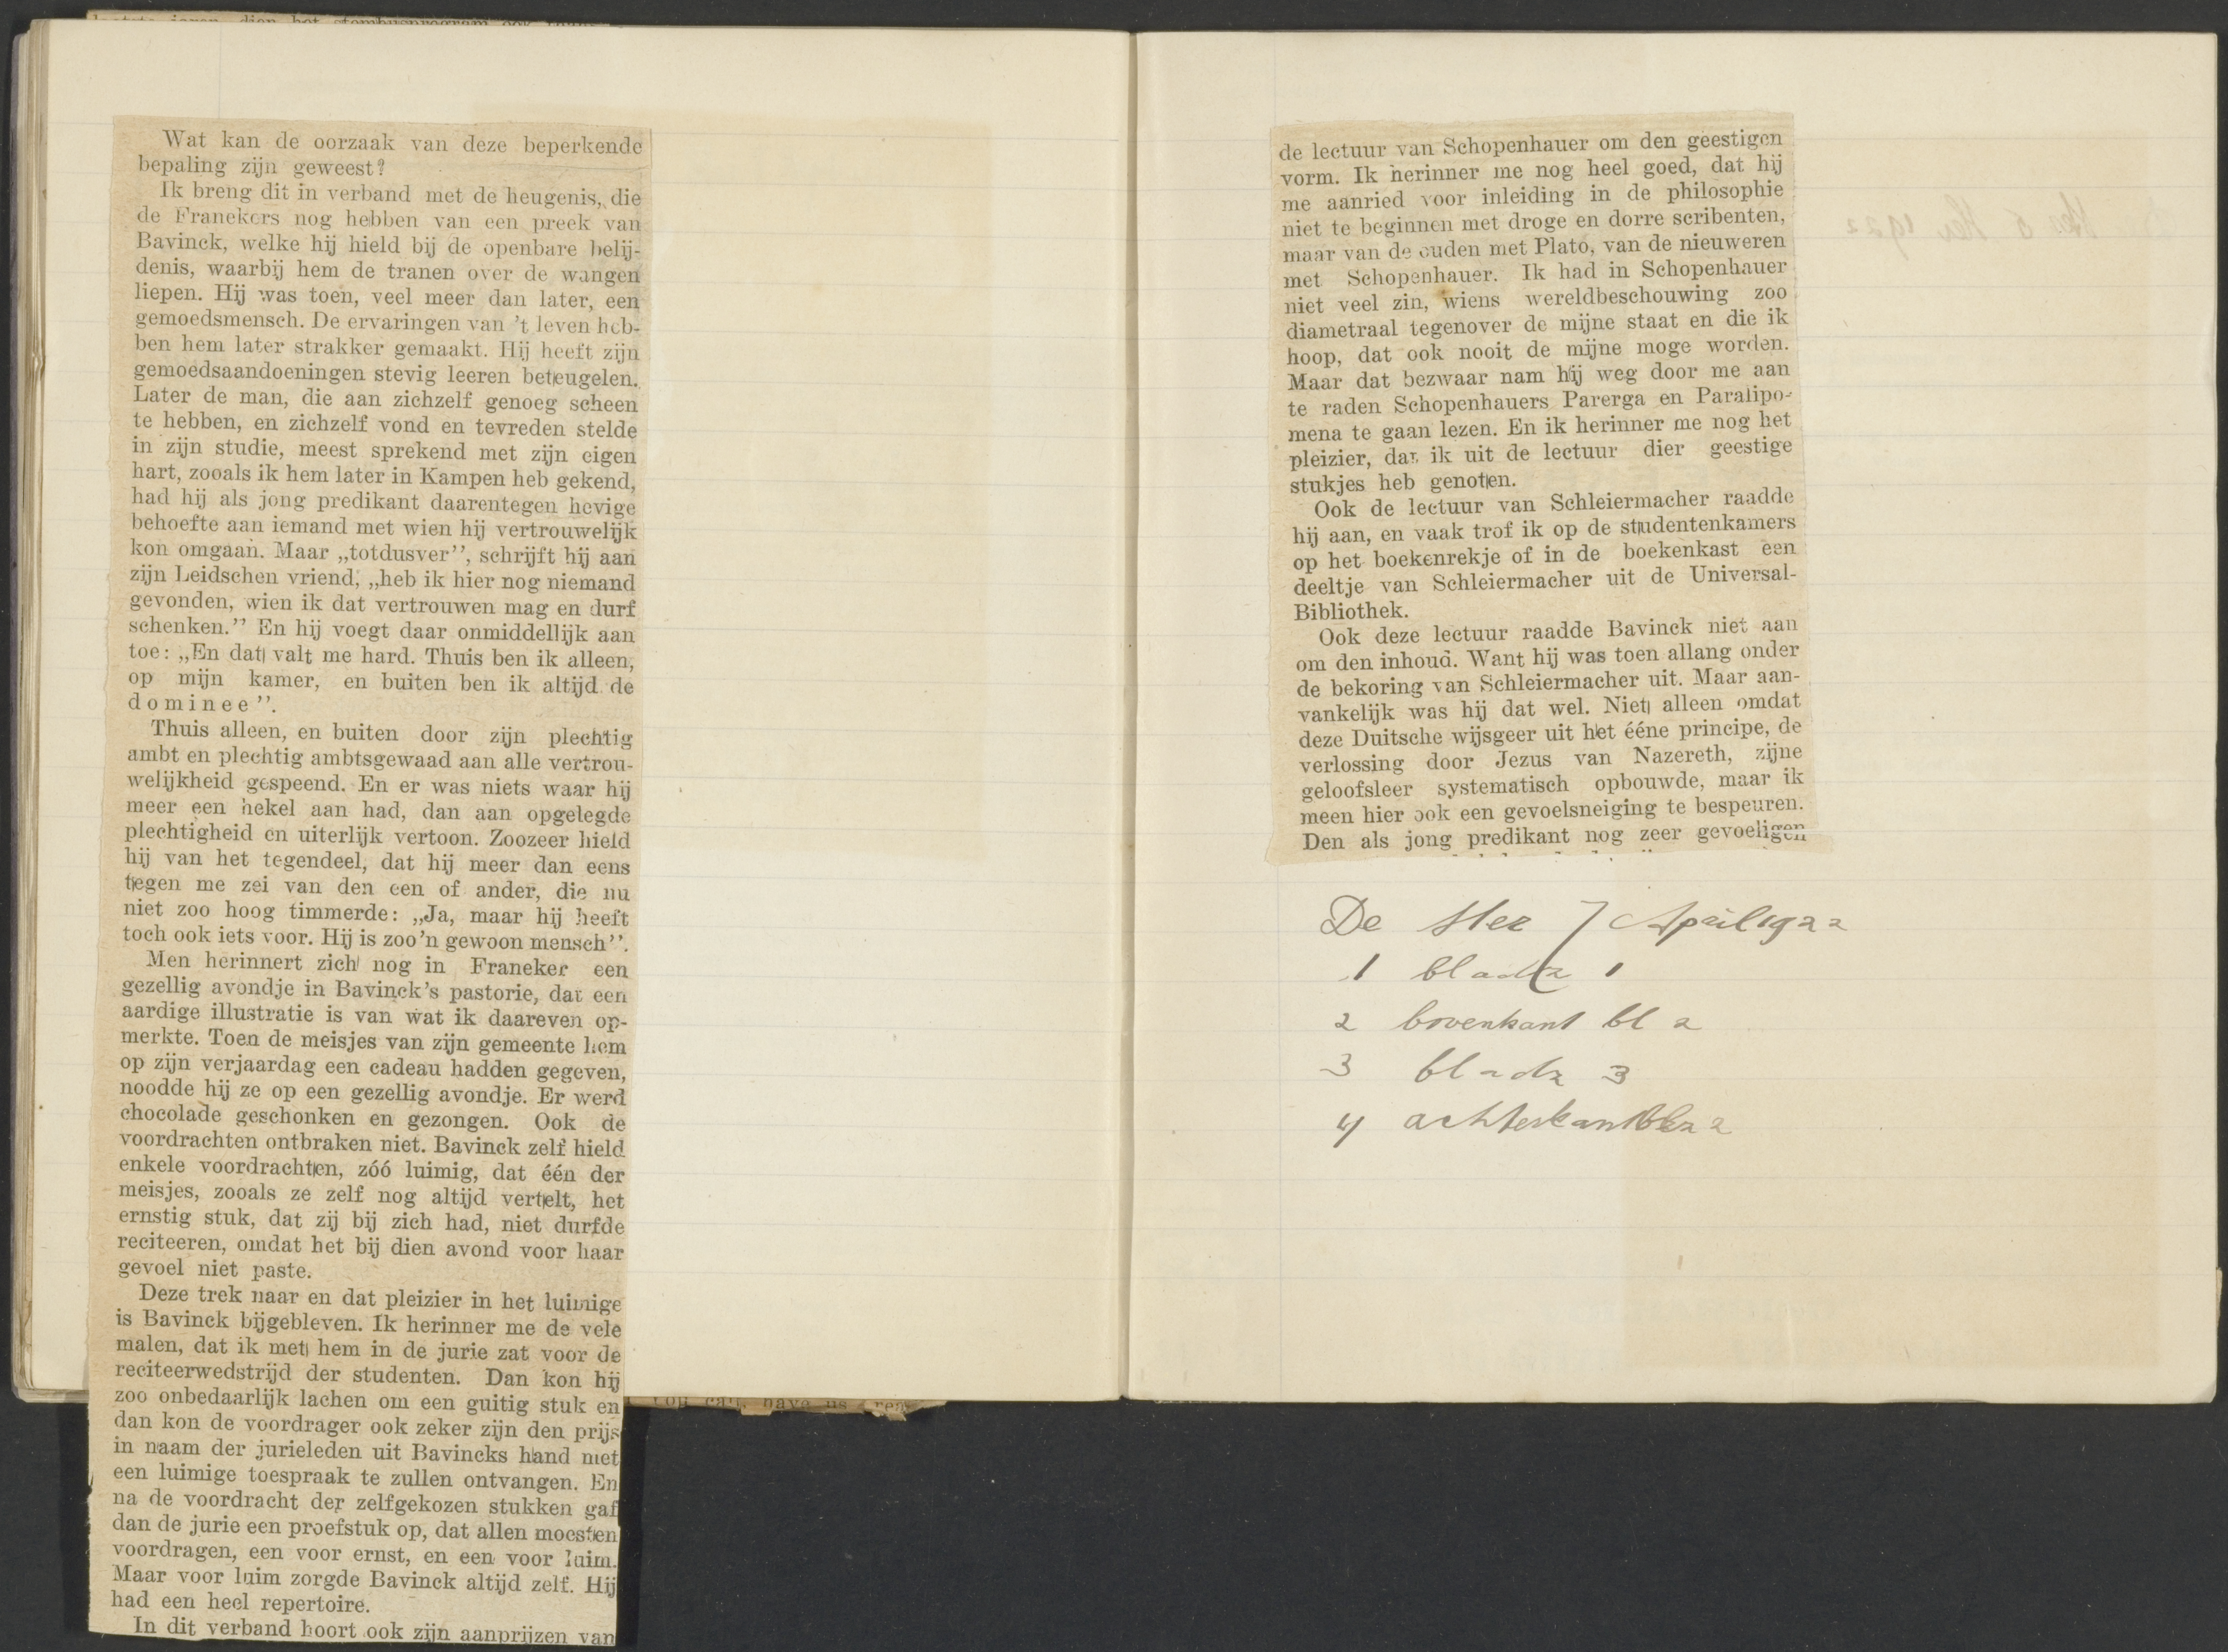 Wat kan de oorzaak van deze beperkende
bepaling zijn geweest?
Ik breng dit in verband met de heugenis, die
de Franekers nog hebben van een preek van
Bavinck, welke hij hield bij de openbare belij-
denis, waarbij hem de tranen over de wangen
liepen. Hij was toen, veel meer dan later, een
gemoedsmensch. De ervaringen van 't leven heb-
ben hem later strakker gemaakt. Hij heeft zijn
gemoedsaandoeningen stevig leeren beteugelen.
Later de man, die aan zichzelf genoeg scheen
te hebben, en zichzelf vond en tevreden stelde
in zijn studie, meest sprekend met zijn eigen
hart, zooals ik hem later in Kampen heb gekend,
had hij als jong predikant daarentegen hevige
behoefte aan iemand met wien hij vertrouwelijk
kon omgaan. Maar „totdusver”, schrijft hij aan
zijn Leidschen vriend, „heb ik hier nog niemand
gevonden, wien ik dat vertrouwen mag en durf
schenken.” En hij voegt daar onmiddellijk aan
toe: „En dat valt me hard. Thuis ben ik alleen,
op mijn kamer, en buiten ben ik altijd de
dominee”.
Thuis alleen, en buiten door zijn plechtig
ambt en plechtig ambtsgewaad aan alle vertrou-
welijkheid gespeend. En er was niets waar hij
meer een hekel aan had, dan aan opgelegde
plechtigheid en uiterlijk vertoon. Zoozeer hield
hij van het tegendeel, dat hij meer dan eens
tegen me zei van den een of ander, die nu
niet zoo hoog timmerde: „Ja, maar hij heeft
toch ook iets voor. Hij is zoo'n gewoon mensch”.
Men herinnert zich nog in Franeker een
gezellig avondje in Bavinck's pastorie, dat een
aardige illustratie is van wat ik daareven op-
merkte. Toen de meisjes van zijn gemeente hem
op zijn verjaardag een cadeau hadden gegeven,
noodde hij ze op een gezellig avondje. Er werd
chocolade geschonken en gezongen. Ook de
voordrachten ontbraken niet. Bavinck zelf hield
enkele voordrachten, zóó luimig, dat één der
meisjes, zooals ze zelf nog altijd vertelt, het
ernstig stuk, dat zij bij zich had, niet durfde
reciteeren, omdat het bij dien avond voor haar
gevoel niet paste.
Deze trek naar en dat pleizier in het luimige
is Bavinck bijgebleven. Ik herinner me de vele
malen, dat ik met hem in de jurie zat voor de
reciteerwedstrijd der studenten. Dan kon hij
zoo onbedaarlijk lachen om een guitig stuk en
dan kon de voordrager ook zeker zijn den prijs
in naam der jurieleden uit Bavincks hand met
een luimige toespraak te zullen ontvangen. En
na de voordracht der zelfgekozen stukken gaf
dan de jurie een proefstuk op, dat allen moesten
voordragen, een voor ernst, en een voor luim.
Maar voor luim zorgde Bavinck altijd zelf. Hij
had een heel repertoire.
In dit verband hoort ook zijn aanprijzen van
de lectuur van Schopenhauer om den geestigen
vorm. Ik herinner me nog heel goed, dat hij
me aanried voor inleiding in de philosophie
niet te beginnen met droge en dorre scribenten,
maar van de ouden met Plato, van de nieuweren
met Schopenhauer. Ik had in Schopenhauer
niet veel zin, wiens wereldbeschouwing zoo
diametraal tegenover de mijne staat en die ik
hoop, dat ook nooit de mijne moge worden.
Maar dat bezwaar nam hij weg door me aan
te raden Schopenhauers Parerga en Paralipo-
mena te gaan lezen. En ik herinner me nog het
pleizier, dat ik uit de lectuur dier geestige
stukjes heb genoten.
Ook de lectuur van Schleiermacher raadde
hij aan, en vaak trof ik op de studentenkamers
op het boekenrekje of in de boekenkast een
deeltje van Schleiermacher uit de Universal-
Bibliothek.
Ook deze lectuur raadde Bavinck niet aan
om den inhoud. Want hij was toen allang onder
de bekoring van Schleiermacher uit. Maar aan-
vankelijk was hij dat wel. Niet alleen omdat
deze Duitsche wijsgeer uit het ééne principe, de
verlossing door Jezus van Nazereth, zijne
geloofsleer systematisch opbouwde, maar ik
meen hier ook een gevoelsneiging te bespeuren.
Den als jong predikant nog zeer gevoeligen
De Her 7 April 1922
1 bladz 1
2 bovenkant bl 2
3 bladz 3
4 achterkant 2